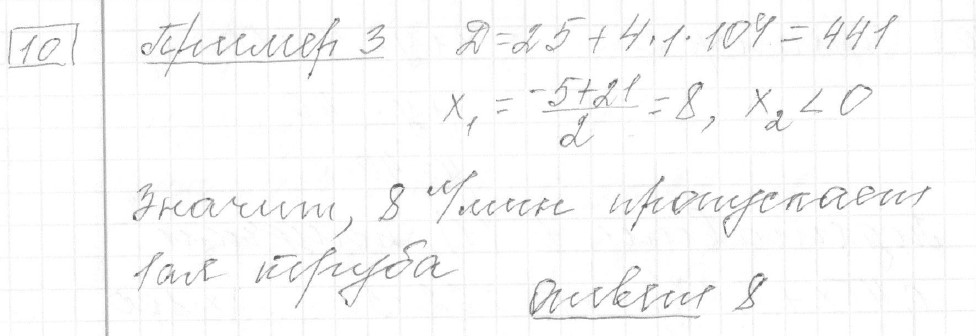 10 Пример 3 D=25+4·1·104=441
x₁ = (-5+21)/2 = 8, x₂ < 0
Значит, 8 л/мин пропускает
1ая труба
Ответ 8